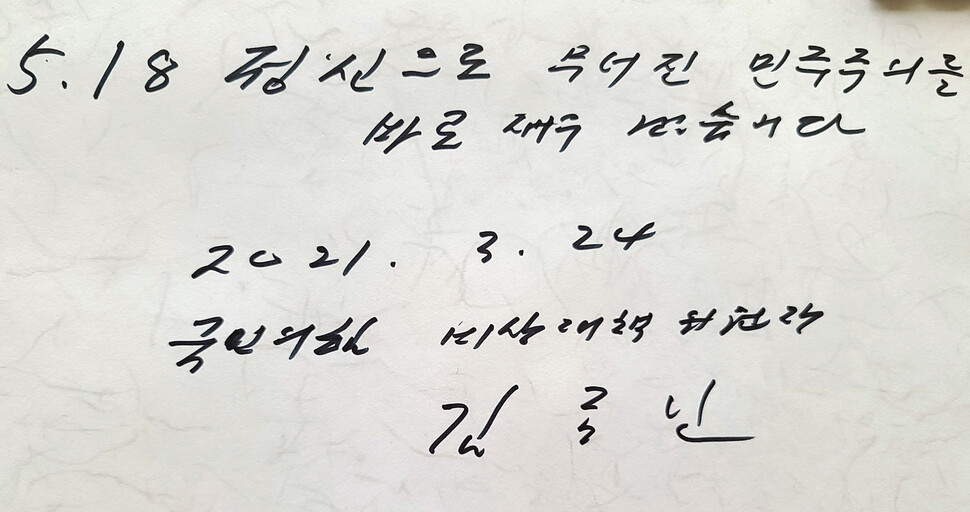 5.18 정신으로 무너진 민주주의를
바로 세우겠습니다
2021. 3. 24
국민의힘 비상대책위원장
김종인